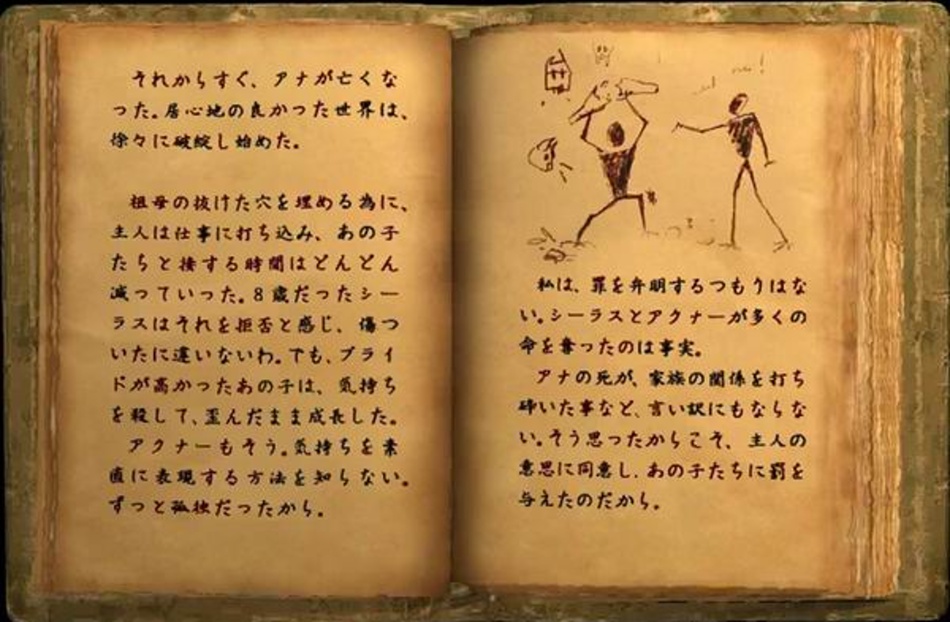 それからすぐ、アナが亡くな
った。居心地の良かった世界は、
徐々に破綻し始めた。
祖母の抜けた穴を埋める為に、
主人は仕事に打ち込み、あの子
たちと接する時間はどんどん
減っていった。8歳だったシー
ラスはそれを拒否と感じ、傷つ
いたに違いないわ。でも、プライ
ドが高かったあの子は、気持ち
を殺して、歪んだまま成長した。
アクナーもそう。気持ちを素
直に表現する方法を知らない。
ずっと孤独だったから。
私は、罪を弁明するつもりはな
い。シーラスとアクナーが多くの
命を奪ったのは事実。
アナの死が、家族の関係を打ち
砕いた事など、言い訳にもならな
い。そう思ったからこそ、主人の
意思に同意し、あの子たちに罰を
与えたのだから。